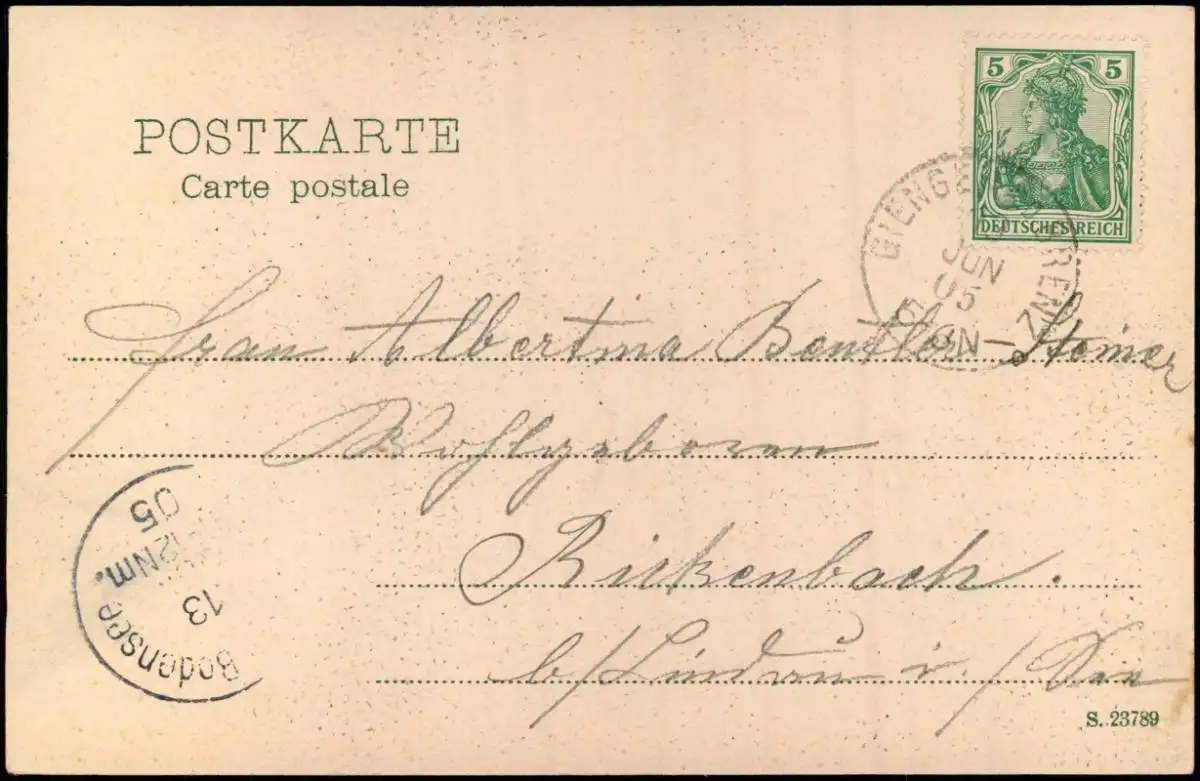 POSTKARTE
Carte postale
5 5
DEUTSCHES REICH
GIENG BRENZ
JUN
05
N
Frau Albertina Steiner
Wohlgeboren
Rickenbach.
b/Lindau i/
Bodensee
13
12Nm.
05
S. 23789